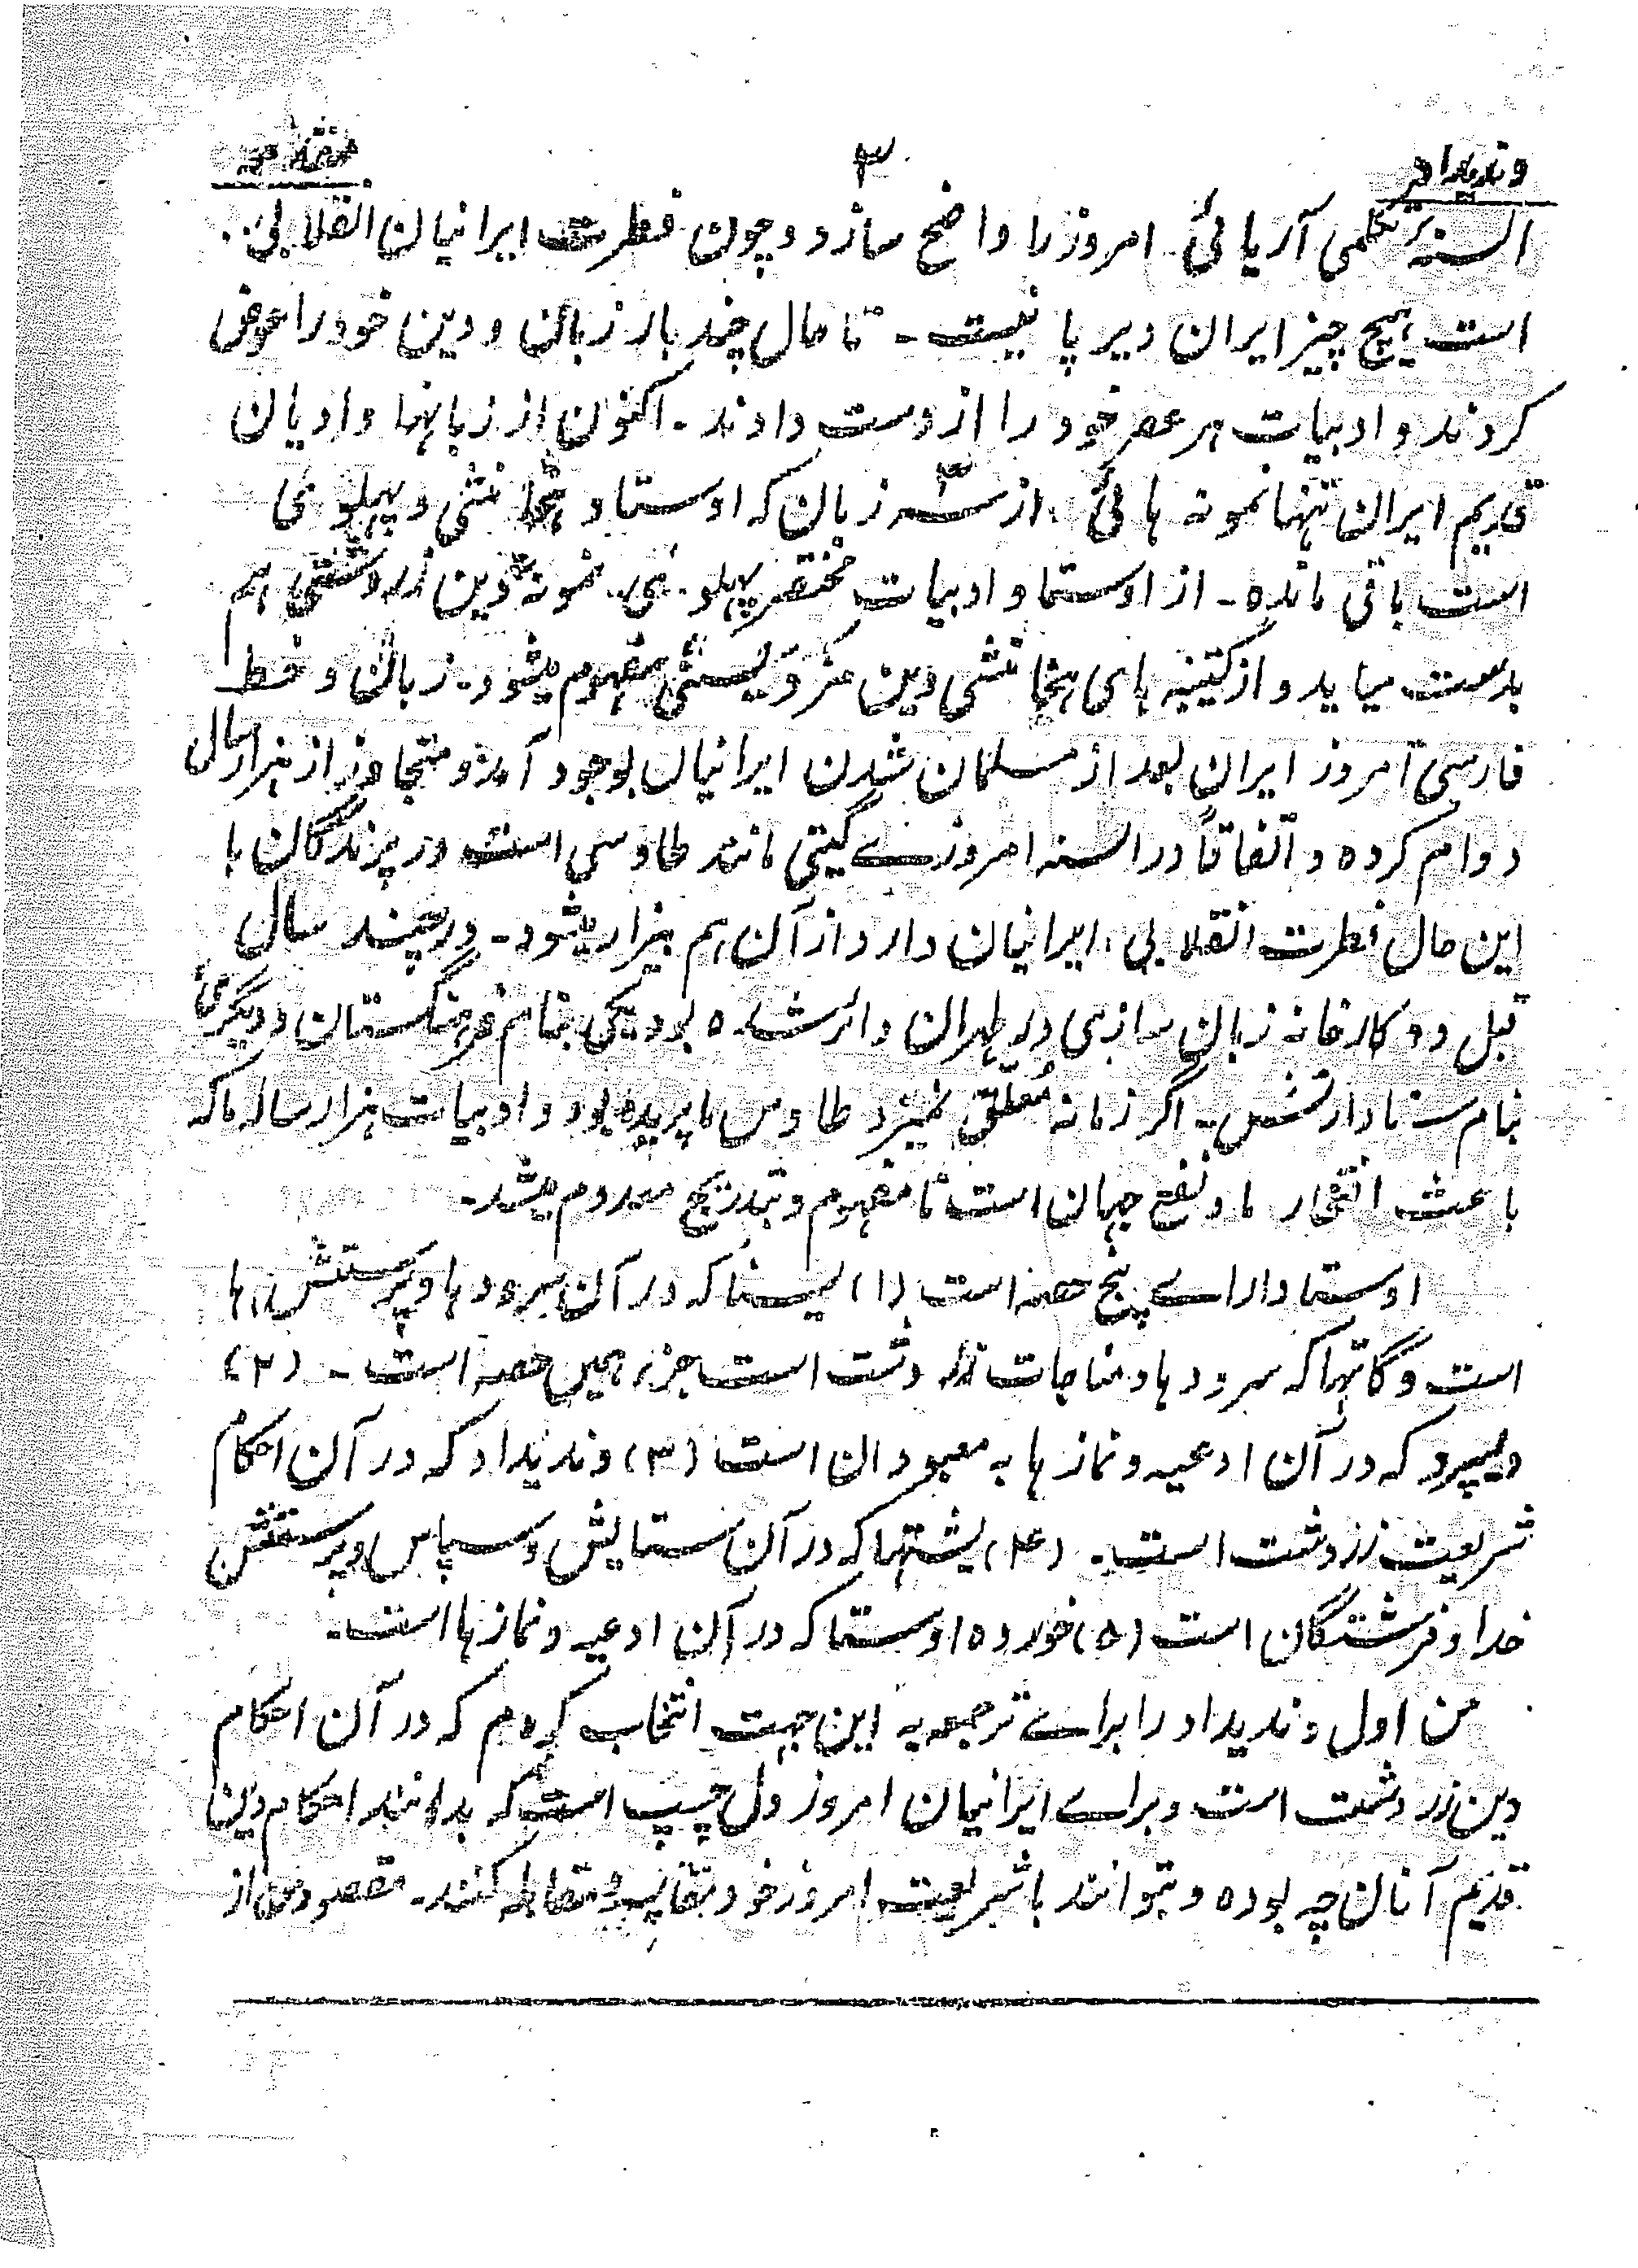 وندیداد ۳ مقدمه
السنهٔ تکلمی آریائی امروز را واضح سازد و چون فطرت ایرانیان انقلابی
است هیچ چیز ایران دیر پا نیست - تا حال چند بار زبان و دین خود را عوض
کردند و ادبیات هر عصر خود را از دست دادند - اکنون از زبانها و ادیان
قدیم ایران تنها نمونه هائی از سه زبان که اوستا و هخامنشی و پهلوی
است باقی مانده - از اوستا و ادبیات مختصر پهلوی نمونهٔ دین زردشتی هم
بدست میاید و از کتیبه های هخامنشی دین مزدیسنی مفهوم میشود - زبان و خط
فارسی امروز ایران بعد از مسلمان شدن ایرانیان بوجود آمد و متجاوز از هزار سال
دوام کرده و اتفاقاً در السنه امروزے گیتی مانند طاوسی است در پرندگان با
این حال فطرت انقلابی ایرانیان دارد از آن هم بیزار میشود - در چند سال
قبل دو کارخانه زبان سازی در طهران دائر شده بود یکی بنام فرهنگستان و دیگری
بنام ستاد ارتش - اگر زمانه معلق نمیزد طاوس ما پریده بود و ادبیات هزار ساله ما که
باعث افتخار ما و نفع جهان است نا مفهوم و بتدریج معدوم میشد -
اوستا داراے پنج حصه است (۱) یسنا که در آن سرودها و پرستش ها
است و گاتها که سرودها و مناجات زردشت است جزء همین حصه است - (۲)
ویسپرو که در آن ادعیه و نمازها به معبودان است (۳) وندیداد که در آن احکام
شریعت زردشت است - (۴) یشتها که در آن ستایش و سپاس و پرستش
خدا و فرشتگان است (۵) خورده اوستا که در آن ادعیه و نمازها است -
من اول وندیداد را براے ترجمه به این جهت انتخاب کردم که در آن احکام
دین زردشت است و براے ایرانیان امروز دل چسپ است که بدانند احکام دین
قدیم آنان چه بوده و بتوانند با شریعت امروز خود مقابله کنند - مقصود من از